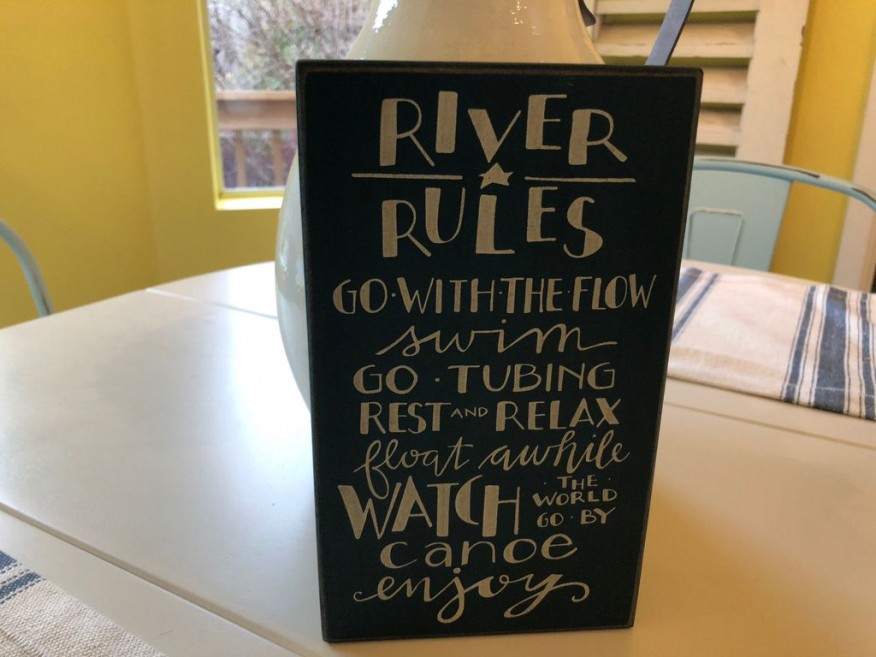 RIVER
RULES
GO·WITH·THE·FLOW
swim
GO · TUBING
REST AND RELAX
float awhile
WATCH · THE · WORLD GO · BY
canoe
enjoy